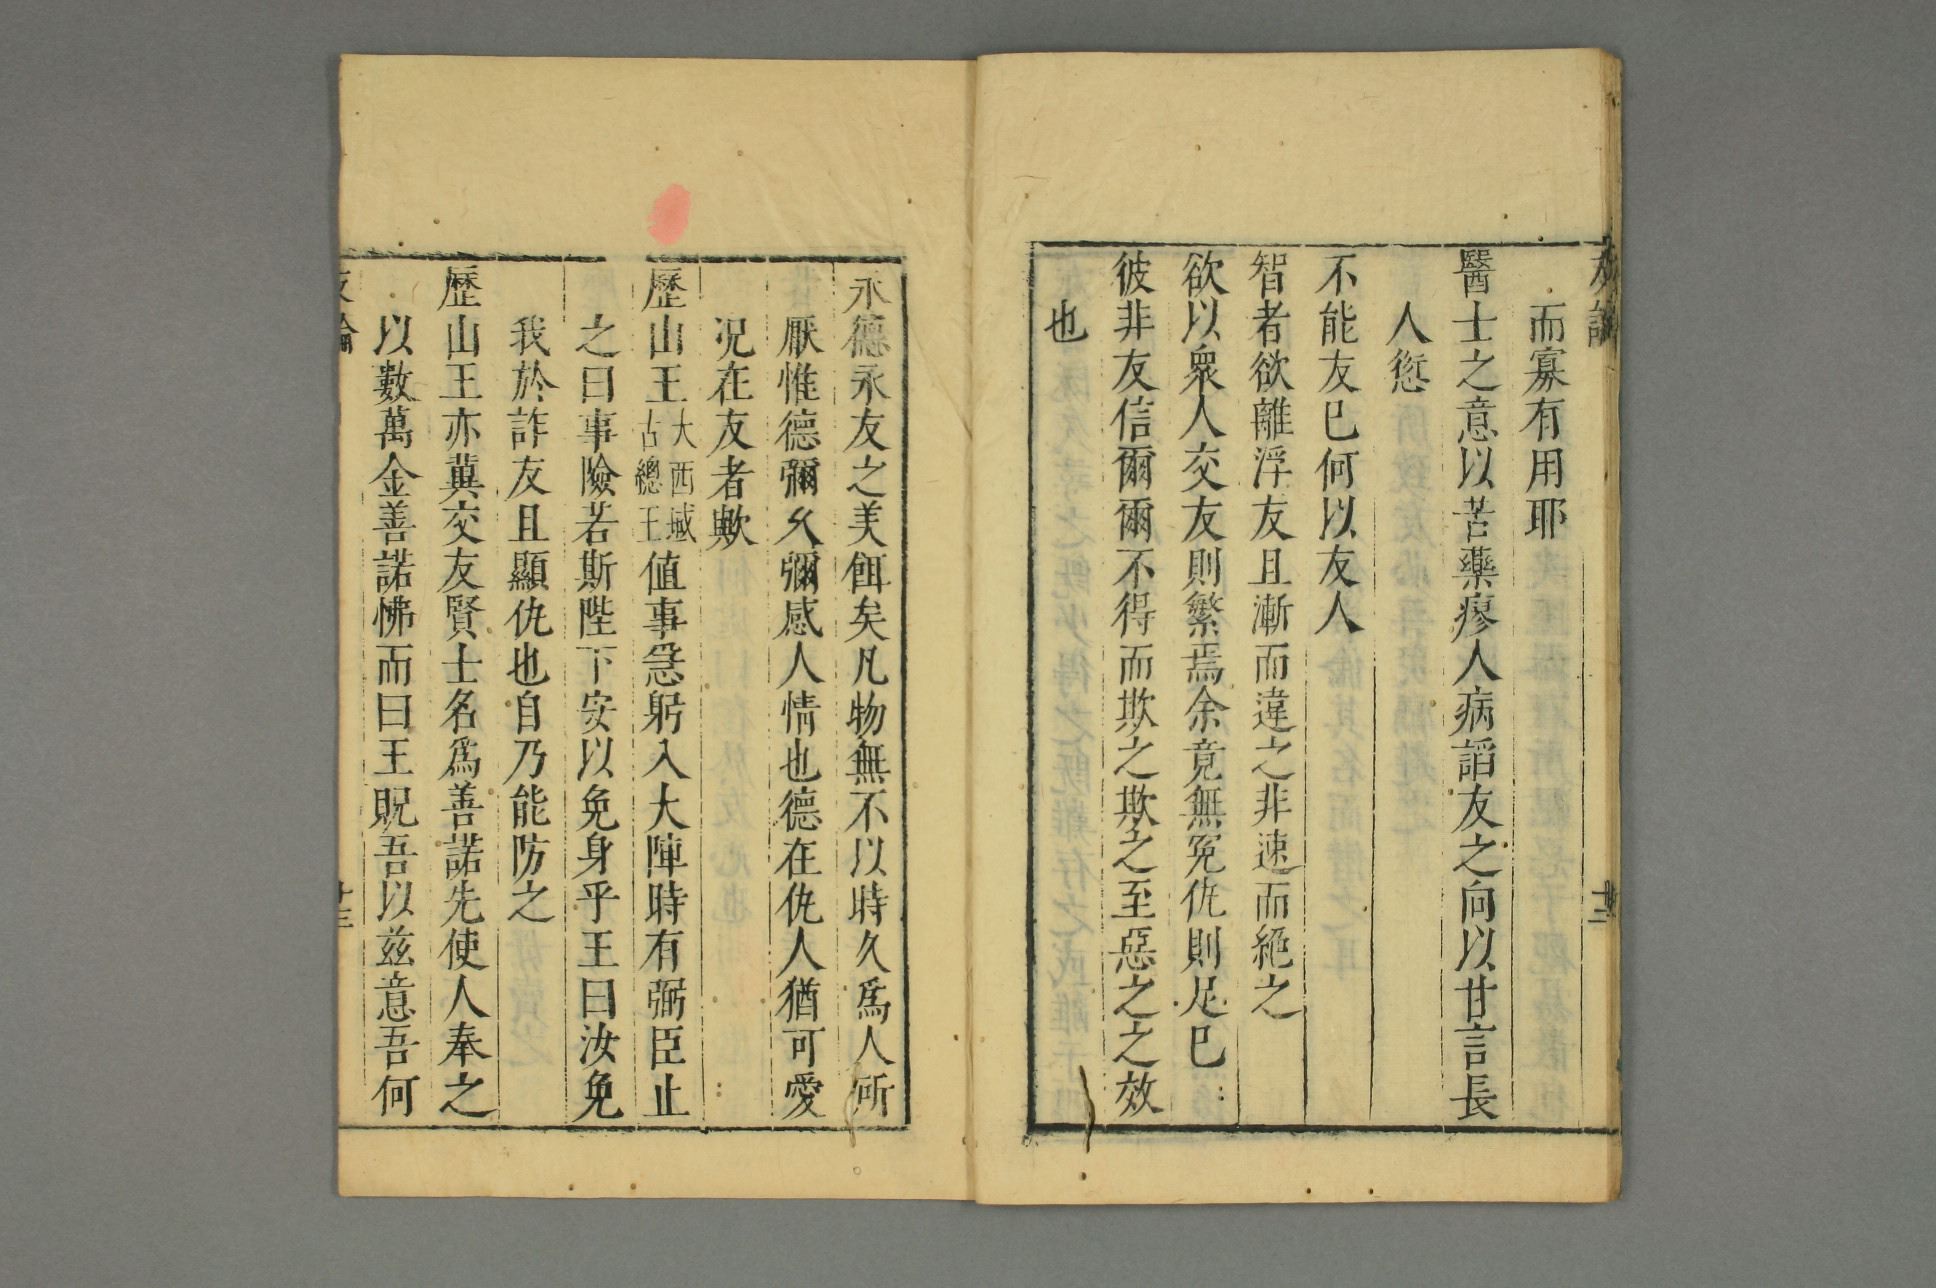 友論
十二
而寡有用耶
醫士之意以苦藥瘳人病諂友之向以甘言長
人愆
不能友已何以友人
智者欲離浮友且漸而違之非速而絶之
欲以衆人交友則繁焉余竟無冤仇則足已
彼非友信爾爾不得而欺之欺之至惡之之效
也
永德永友之美餌矣凡物無不以時久爲人所
厭惟德彌久彌感人情也德在仇人猶可愛
况在友者歟
歷山王大西域古總王值事急躬入大陣時有弼臣止
之曰事險若斯陛下安以免身乎王曰汝免
我於詐友且顯仇也自乃能防之
歷山王亦兾交友賢士名爲善諾先使人奉之
以數萬金善諾怫而曰王貺吾以兹意吾何
友論
十三